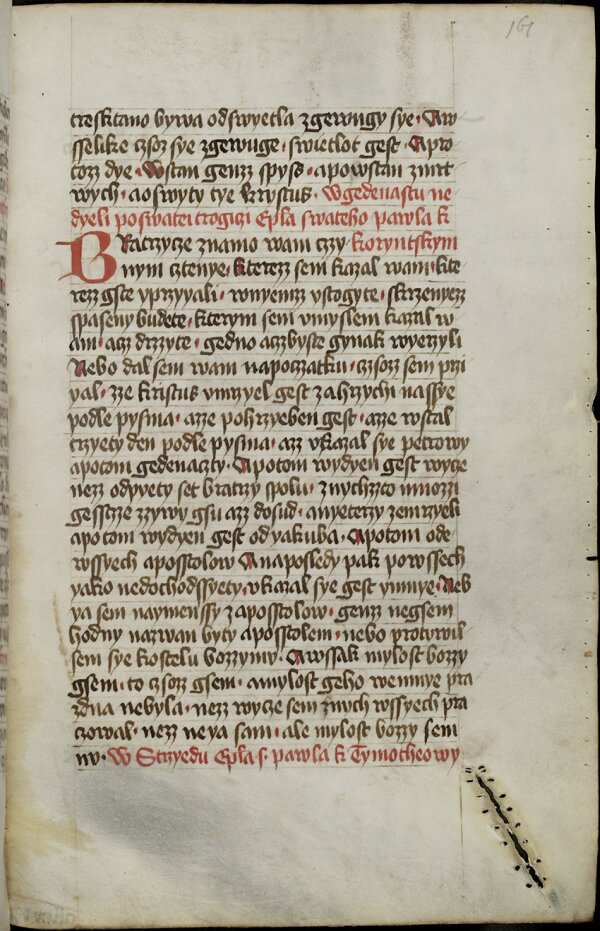 161
tresktano bywa od swyetla zgewugy sye · Aw
sselike czoz sye zgewuge · swietlot gest · Apro
tozz dye · Wstan genzz spyss · apowstan zmrt
wych · aoswyty tye krystus · Wgedenastu ne
dyeli po swatei trogiczi Epla swateho pawla k
Bratrzycze znamo wam czzy · koryntskym
nym cztenye · kterezz sem kazal wam · kte
rezz gste vprzyyali · wnyemzz vstogyte · skrzenyezz
spaseny budete · kterym sem vmyslem kazal w
am · azz drzyte · gedno aczbyste gynak wyerzyli
Nebo dal sem wam napoczatku · czsozz sem przi
yal · zze kristus vmrzyel gest zahrzychi nassye
podle pysma · azze pohrzyeben gest · azze wstal
trzyety den podle pysma · azz vkazal sye petrowy
apotom gedenaczty · Apotom wydyen gest wycze
nezz odpyety set bratrzy spolu · znychzto mnozzi
gesscze zzywy gsu azz dosud · anyeterzy zemrzyeli
apotom wydyen gest od yakuba · Apotom ode
wssyech aposstolow Anaposledy pak powssech
yako nedochodssyety · vkazal sye gest ymnye · Neb
ya sem naymenssy zaposstolow · genzz negsem
hodny nazwan byty aposstolem · nebo protywil
sem sye kostelu bozzymu · Awssak mylost bozzy
gsem · to czsozz gsem · amylost geho we mnye pra
zdna nebyla · nezz wycze sem znych wssyech pra
czowal · nezz ne ya sam · ale mylost bozzy sem
nu · W Strzyedu Epla s · pawla k Tymotheowy